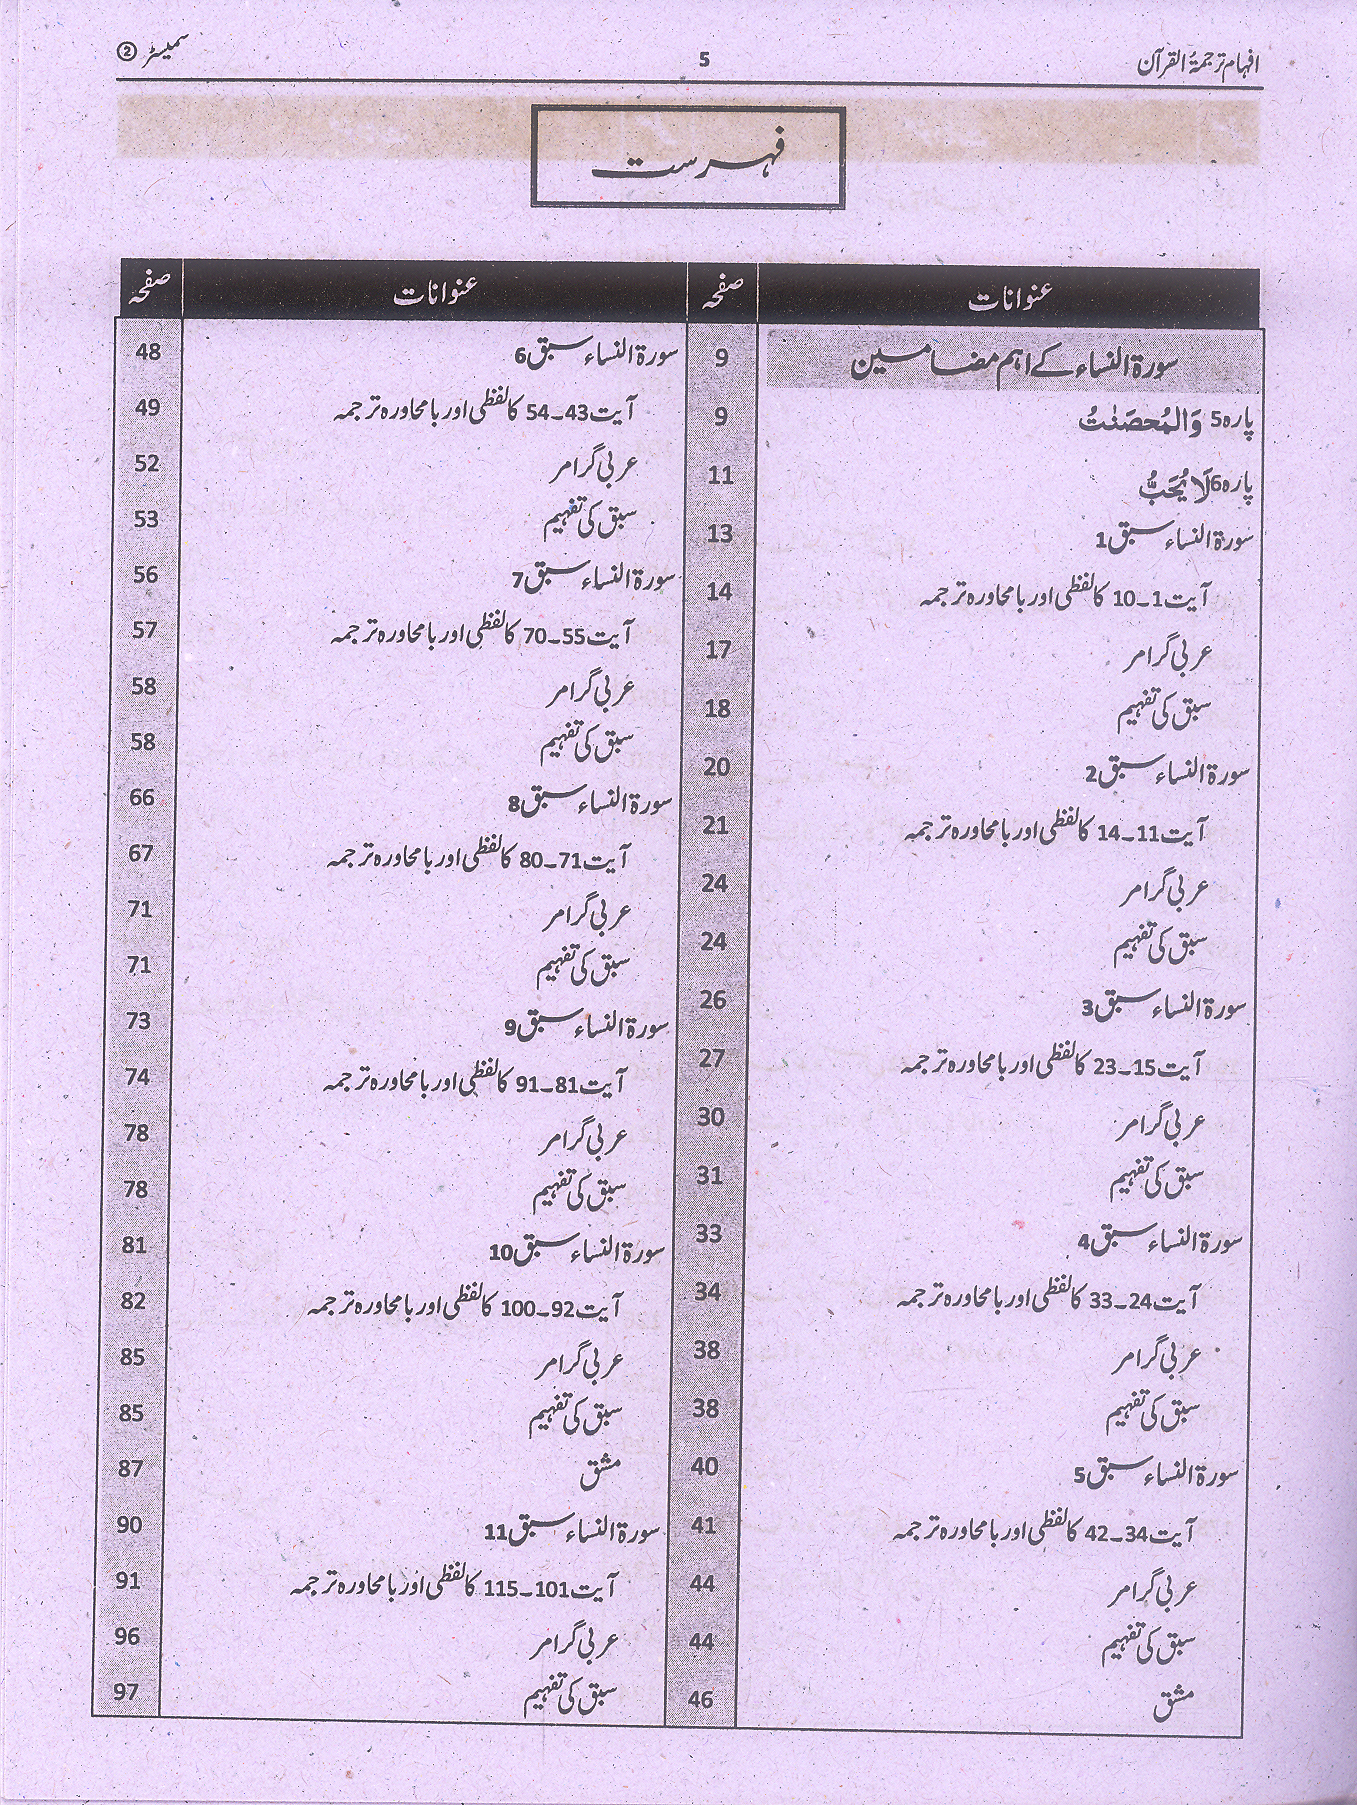 افہام ترجمۃُ القرآن 5 سمیسٹر ②
فہرست
عنوانات صفحہ عنوانات صفحہ
سورۃ النساء کے اہم مضامین 9
پارہ 5 وَالْمُحصَنٰتُ 9
پارہ 6 لَا یُحِبُّ 11
سورۃ النساء سبق 1 13
آیت 1۔10 کا لفظی اور بامحاورہ ترجمہ 14
عربی گرامر 17
سبق کی تفہیم 18
سورۃ النساء سبق 2 20
آیت 11۔14 کا لفظی اور بامحاورہ ترجمہ 21
عربی گرامر 24
سبق کی تفہیم 24
سورۃ النساء سبق 3 26
آیت 15۔23 کا لفظی اور بامحاورہ ترجمہ 27
عربی گرامر 30
سبق کی تفہیم 31
سورۃ النساء سبق 4 33
آیت 24۔33 کا لفظی اور بامحاورہ ترجمہ 34
عربی گرامر 38
سبق کی تفہیم 38
سورۃ النساء سبق 5 40
آیت 34۔42 کا لفظی اور بامحاورہ ترجمہ 41
عربی گرامر 44
سبق کی تفہیم 44
مشق 46
سورۃ النساء سبق 6 48
آیت 43۔54 کا لفظی اور بامحاورہ ترجمہ 49
عربی گرامر 52
سبق کی تفہیم 53
سورۃ النساء سبق 7 56
آیت 55۔70 کا لفظی اور بامحاورہ ترجمہ 57
عربی گرامر 58
سبق کی تفہیم 58
سورۃ النساء سبق 8 66
آیت 71۔80 کا لفظی اور بامحاورہ ترجمہ 67
عربی گرامر 71
سبق کی تفہیم 71
سورۃ النساء سبق 9 73
آیت 81۔91 کا لفظی اور بامحاورہ ترجمہ 74
عربی گرامر 78
سبق کی تفہیم 78
سورۃ النساء سبق 10 81
آیت 92۔100 کا لفظی اور بامحاورہ ترجمہ 82
عربی گرامر 85
سبق کی تفہیم 85
مشق 87
سورۃ النساء سبق 11 90
آیت 101۔115 کا لفظی اور بامحاورہ ترجمہ 91
عربی گرامر 96
سبق کی تفہیم 97